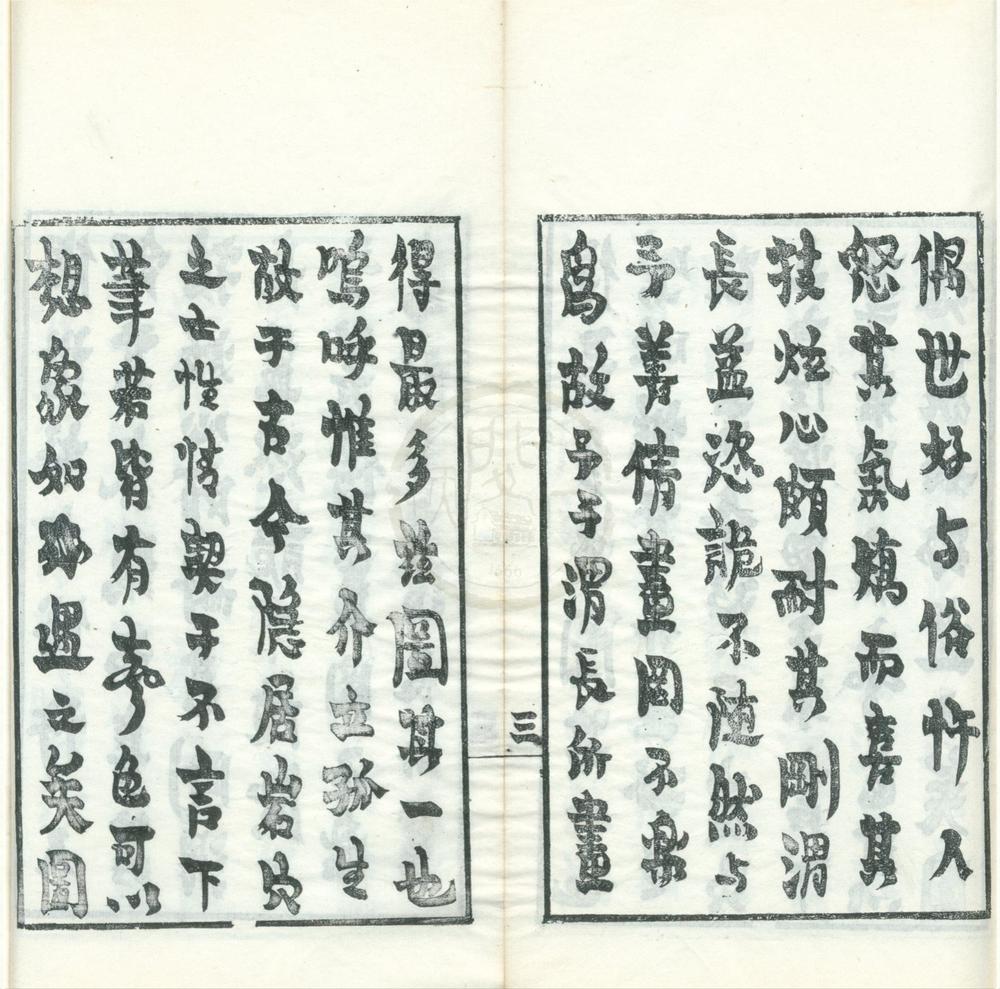 偶世好与俗忤人
怒其氣 而喜其
技 心頗耐其剛渭
長益恣詭不随然与
予善倩畫図不樂
為故予于渭長所畫
三
得最多 圖其一也
嗚呼惟其介立孤生
故于古今隠居岩穴
之士性情契于不言下
筆若皆有 色可以
想象如 遇之矣圖